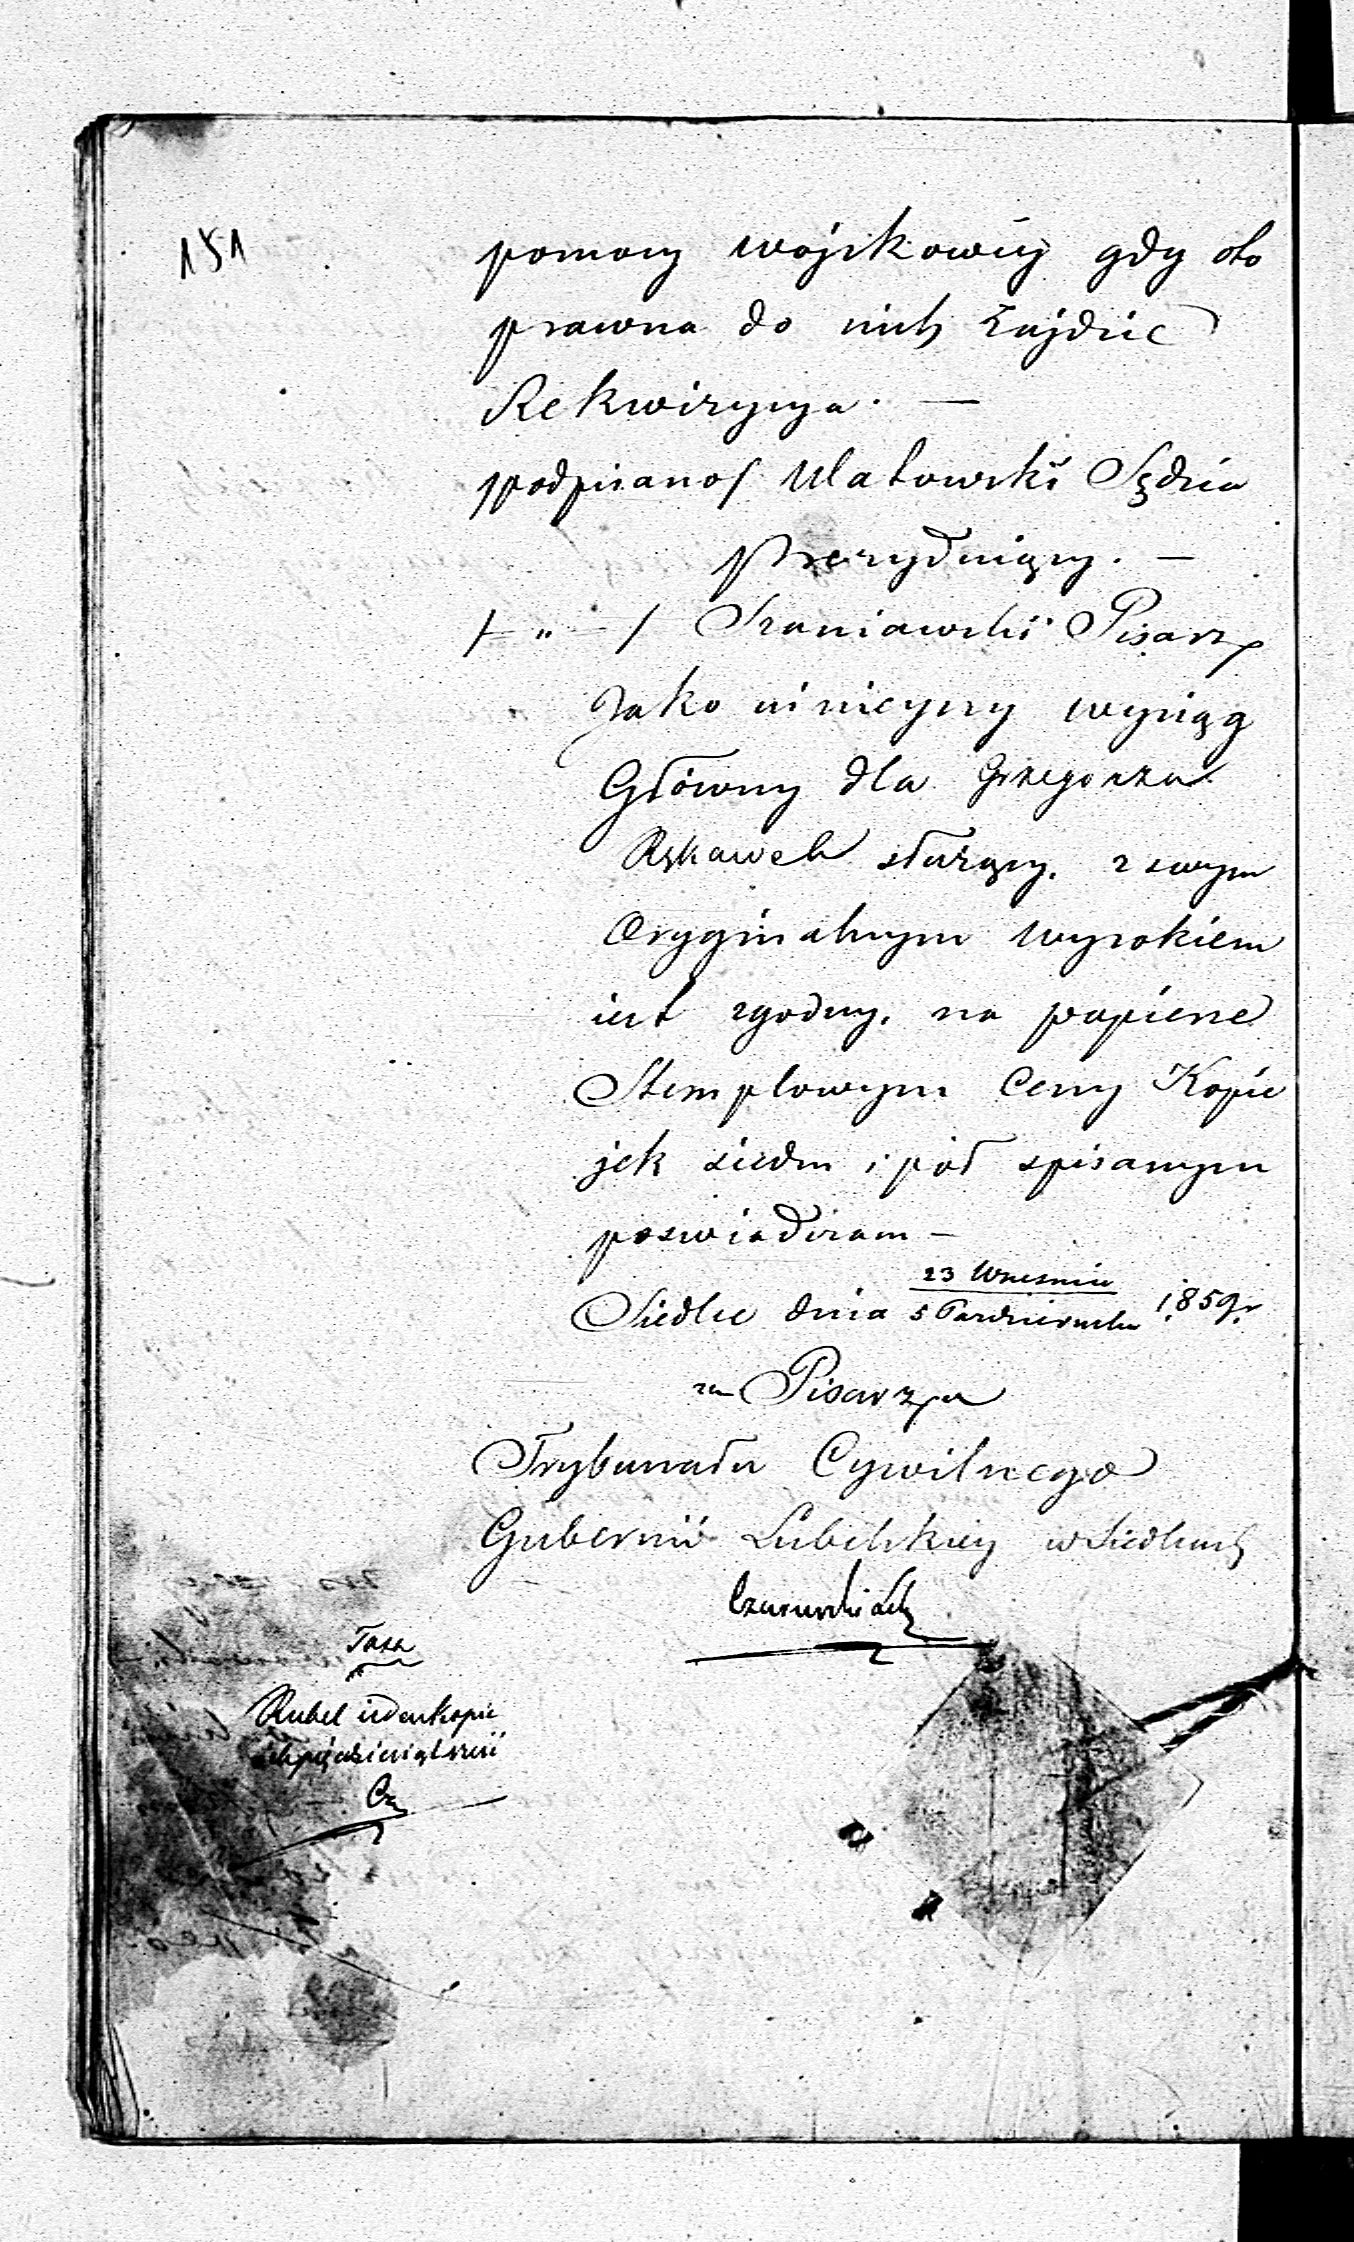 151
pomocy wojskowéj gdy oto
prawna do nich zajdzie
Rekwizycya. —
podpisano/ Ulatowski Sędzia
Prezydujący. —
/– " –/ Szaniawski Pisarz
Jako niniejszy wyciąg
Główny dla Grzegorza
Rękawek służący, z swym
Oryginalnym wyrokiem
iest zgodny, na papierze
Stemplowym Ceny Kopie
jek siedm i pół spisanym
poswiadczam —
Siedlce dnia 23 Wrzesnia / 5 Pazdziernika 1859 r
za Pisarza
Trybunału Cywilnego
Gubernii Lubelskiey w Siedlcach
Taxa
Rubel ieden kopie
iek pięcdziesiąt sześć
Cz